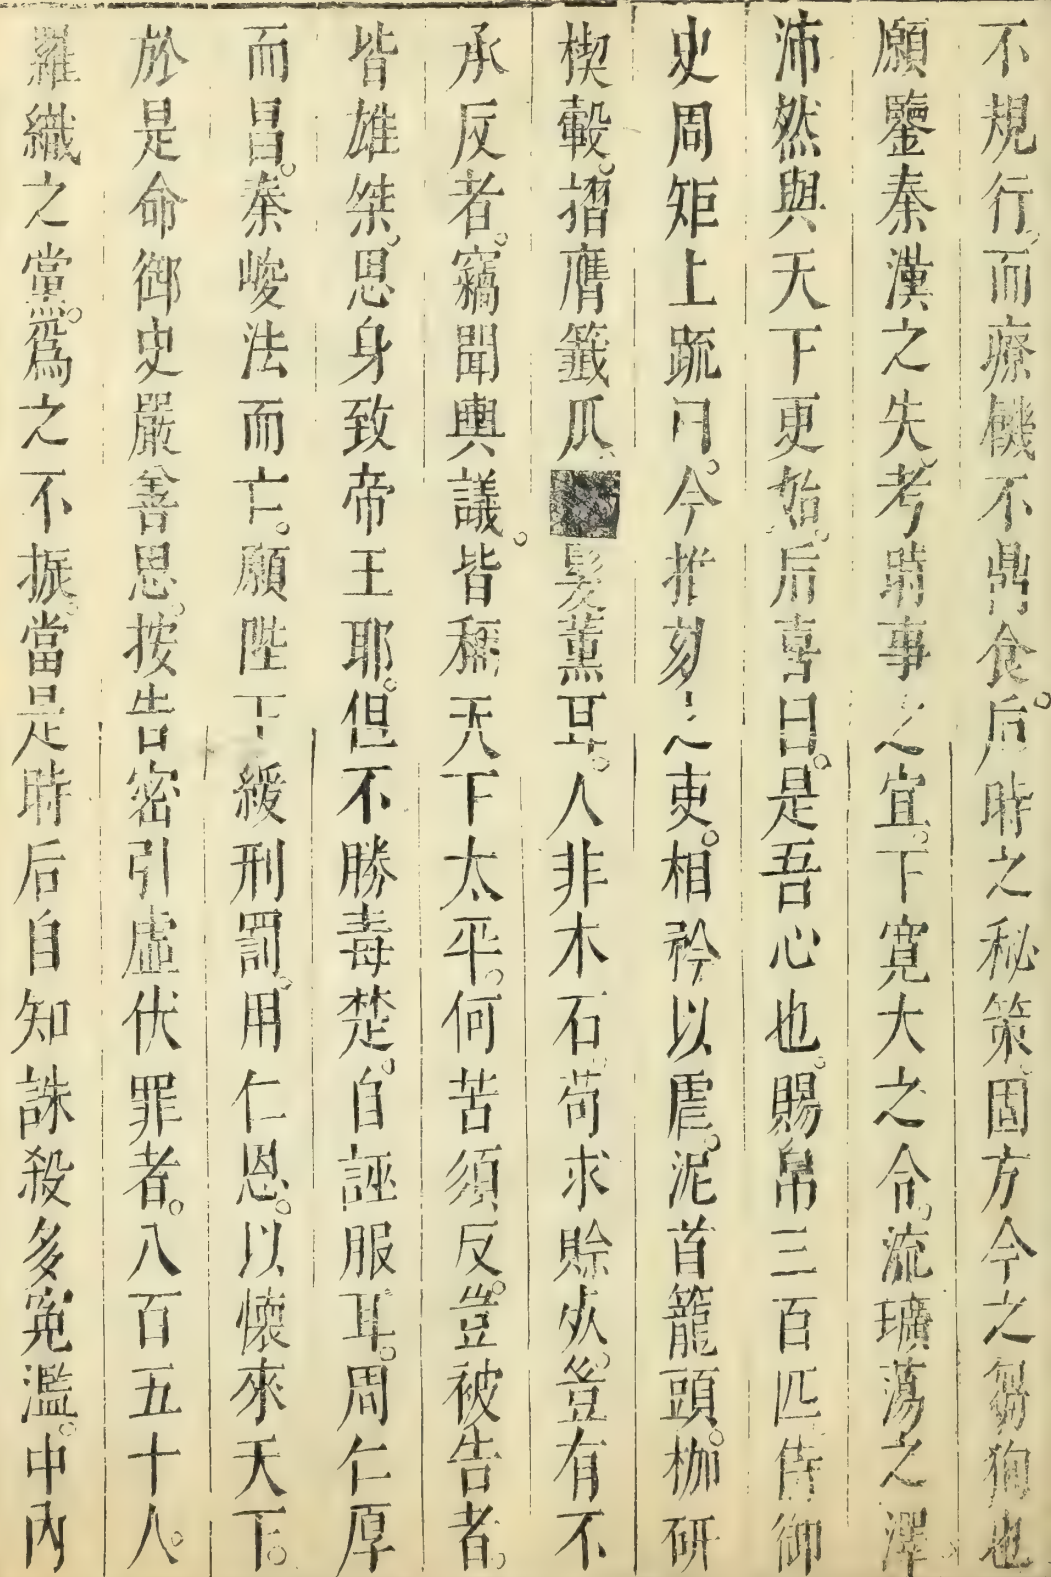 不規行而療饑不鼎食后時之秘策固方今之芻狗也
願鑒秦漢之失考時事之宜下寛大之令流曠蕩之澤
沛然與天下更始后喜曰是吾心也賜帛三百匹侍御
史周矩上疏曰今推刻之吏相矜以虐泥首籠頭枷研
楔轂摺膺籖爪髮薰耳人非木石苟求賒死豈有不
承反者竊聞輿議皆稱天下太平何苦須反豈被告者
皆雄桀思身致帝王耶但不勝毒楚自誣服耳周仁厚
而昌秦峻法而亡願陛下緩刑罰用仁恩以懷來天下
於是命御史嚴善思按告密引虛伏罪者八百五十人
羅織之黨爲之不振當是時后自知誅殺多寃濫中內